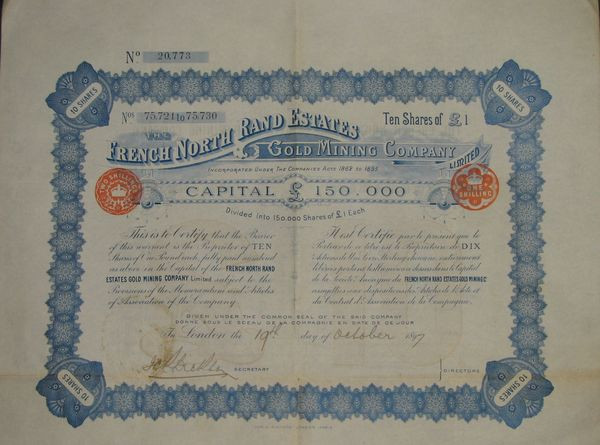 No 20,773
10 SHARES
10 SHARES
Nos 75.721 to 75.730
Ten Shares of £1
THE
FRENCH NORTH RAND ESTATES
& GOLD MINING COMPANY
LIMITED
INCORPORATED UNDER THE COMPANIES ACTS 1862 TO 1893
TWO SHILLINGS
CAPITAL £ 150.000
ONE SHILLING
Divided into 150.000 Shares of £1 Each
This is to Certify that the Bearer
of this warrant is the Proprietor of TEN
Shares of One Pound each, fully paid numbered
as above in the Capital of the FRENCH NORTH RAND
ESTATES GOLD MINING COMPANY Limited subject to the
Provisions of the Memorandum and Articles
of Association of the Company.
Il est Certifié par le présent que le
Porteur de ce titre est le Propriétaire de DIX
Actions de Une Livre Sterling chacune, entièrement
de la Société Anonyme the FRENCH NORTH RAND ESTATES GOLD MINING Cº
du Contrat d'Association de la Compagnie.
GIVEN UNDER THE COMMON SEAL OF THE SAID COMPANY
DONNÉ SOUS LE SCEAU DE LA COMPAGNIE EN DATE DE CE JOUR
In London the 19th day of October 1897
SECRETARY
DIRECTORS
10 SHARES
10 SHARES